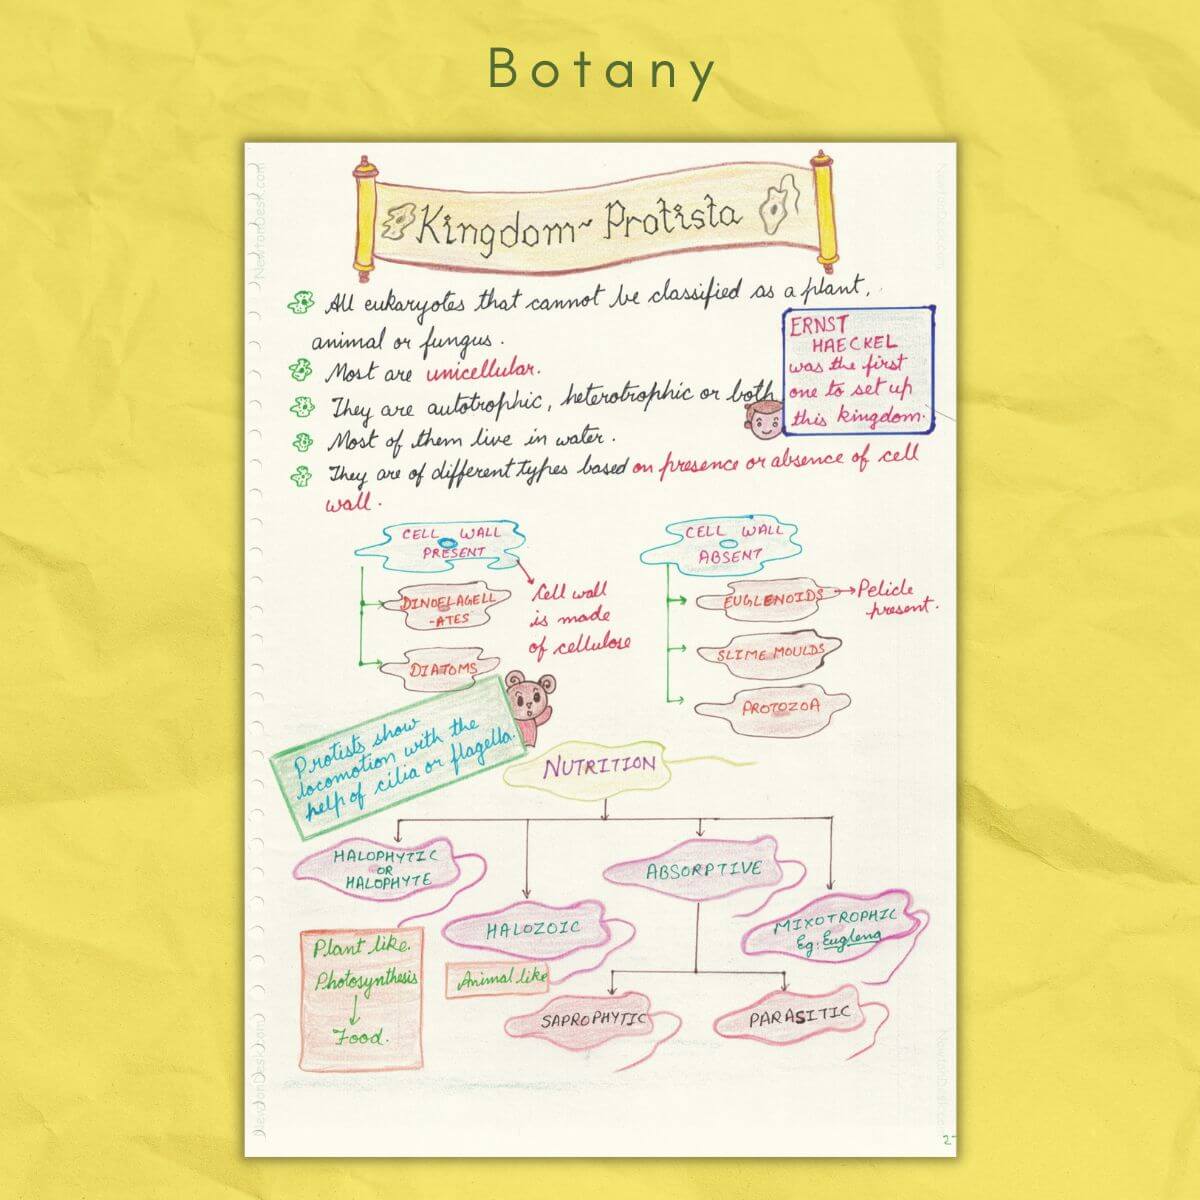 Botany
Kingdom~ Protista
All eukaryotes that cannot be classified as a plant,
animal or fungus.
Most are unicellular.
They are autotrophic, heterotrophic or both
Most of them live in water.
They are of different types based on presence or absence of cell
wall.
ERNST
HAECKEL
was the first
one to set up
this kingdom.
CELL WALL
PRESENT
DINOFLAGELL
-ATES
DIATOMS
Cell wall
is made
of cellulose
CELL WALL
ABSENT
EUGLENOIDS
Pelicle
present.
SLIME MOULDS
PROTOZOA
Protists show
locomotion with the
help of cilia or flagella.
NUTRITION
HALOPHYTIC
OR
HALOPHYTE
HALOZOIC
ABSORPTIVE
MIXOTROPHIC
Eg: Euglena
Plant like.
Photosynthesis
Food.
Animal like
SAPROPHYTIC
PARASITIC
NewtonDesk.com
NewtonDesk.com
NewtonDesk.com
NewtonDesk.com